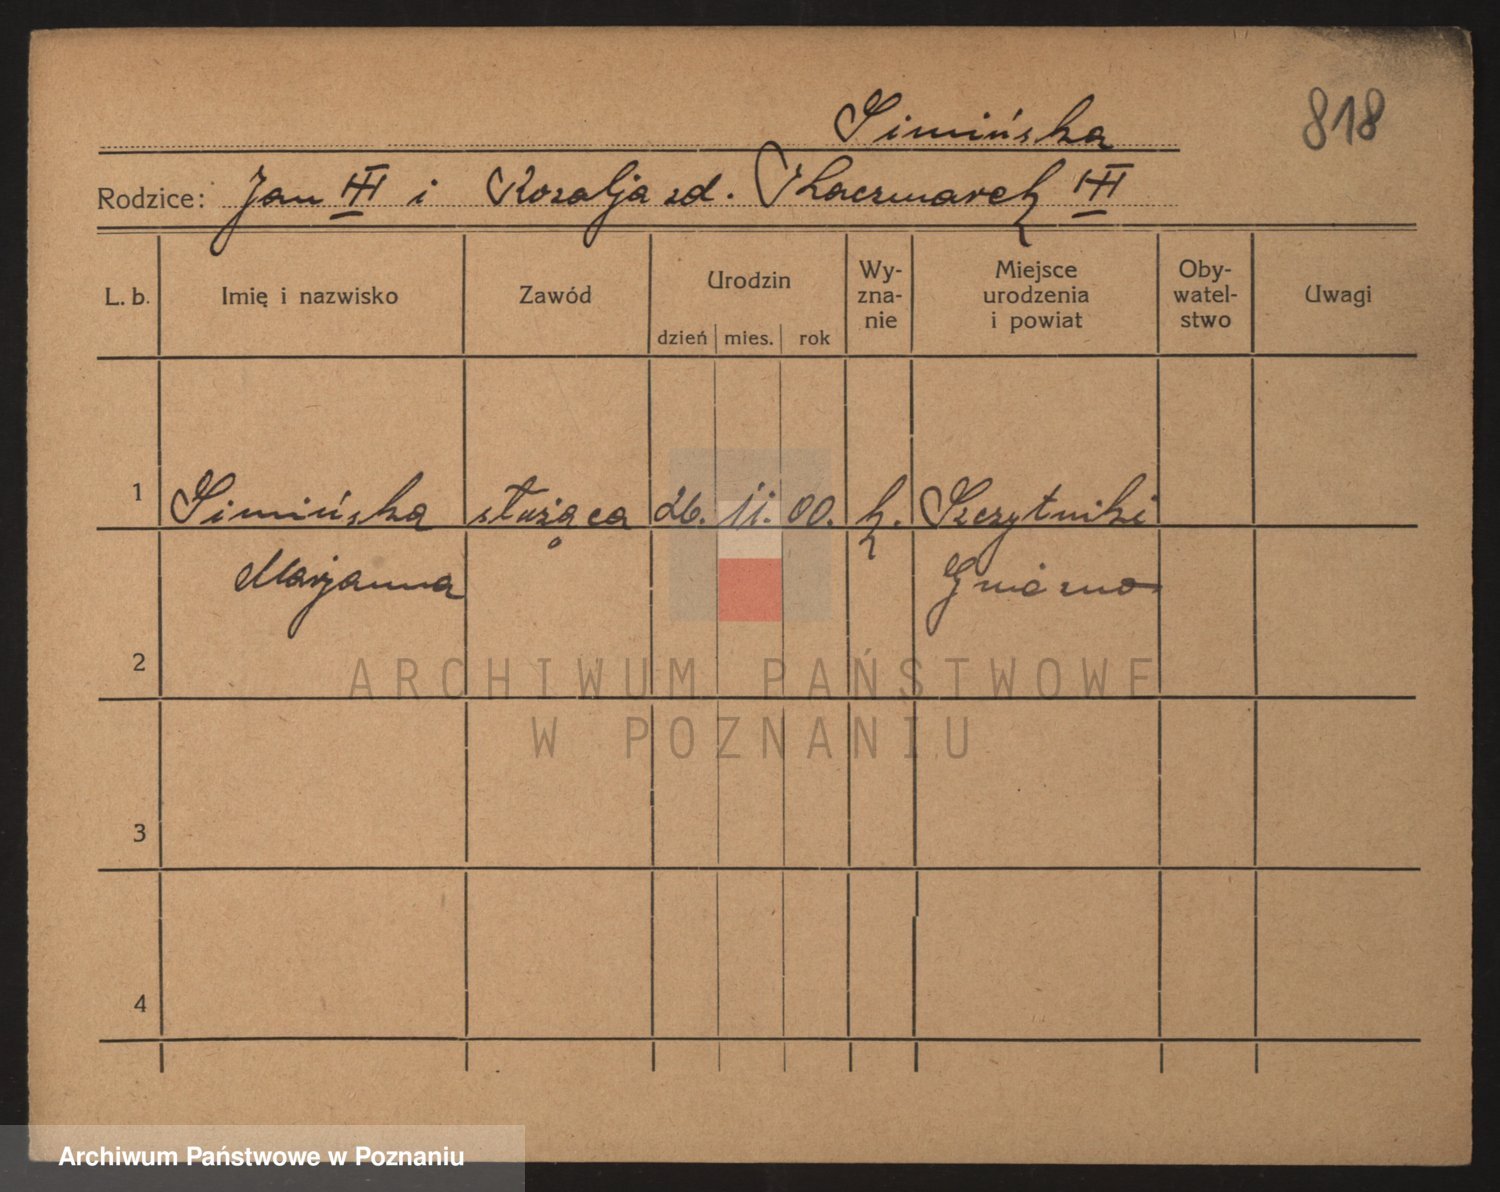 Simińska
818
Rodzice: Jan i Rozalja zd. Kaczmarek
L. b.
Imię i nazwisko
Zawód
Urodzin
dzień mies. rok
Wy-
zna-
nie
Miejsce
urodzenia
i powiat
Oby-
watel-
stwo
Uwagi
1 Simińska służąca 26. 11. 00. k. Szczytniki
Marjanna Gniezno
2
3
4
ARCHIWUM PAŃSTWOWE
W POZNANIU
Archiwum Państwowe w Poznaniu